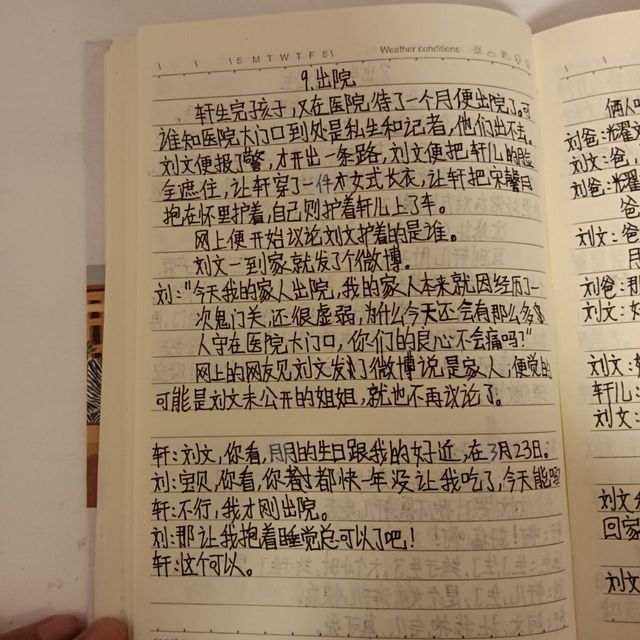 S M T W T F S
Weather conditions
9.出院
轩生完孩子,又在医院,待了一个月便出院了。可
谁知医院大门口到处是私生和记者,他们出不去。
刘文便报了警,才开出一条路,刘文便把轩儿的脸
全遮住,让轩穿了一件女式长衣,让轩把宋馨月
抱在怀里护着,自己则护着轩儿上了车。
网上便开始议论刘文护着的是谁。
刘文一到家就发了个微博。
刘:"今天我的家人出院,我的家人本来就因经历了一
次鬼门关,还很虚弱,为什么今天还会有那么多
人守在医院大门口,你们的良心不会痛吗?"
网上的网友见刘文发了微博说是家人,便觉的
可能是刘文未公开的姐姐,就也不再议论了。
轩:刘文,你看,月月的生日跟我的好近,在3月23日。
刘:宝贝,你看,你都快一年没让我吃了,今天能
轩:不行,我才刚出院。
刘:那让我抱着睡觉总可以了吧!
轩:这个可以。
俩人
刘爸:耀
刘文:爸,
刘爸:耀
爸
刘文:爸
月
刘爸:那
刘文:好
刘文:
轩儿:
刘文:
刘文
回家
刘文